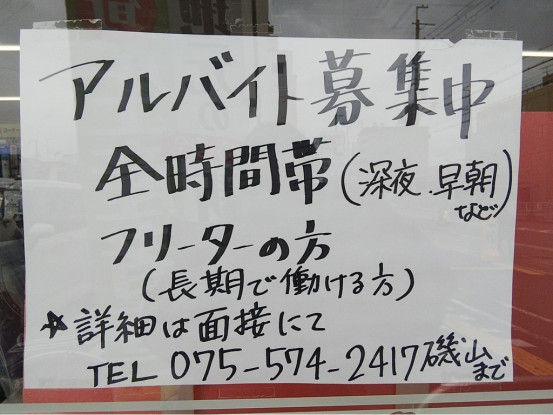 アルバイト募集中
全時間帯(深夜、早朝など)
フリーターの方
(長期で働ける方)
☆詳細は面接にて
TEL 075-574-2417 磯山まで